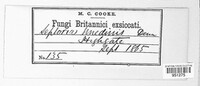 M. C. COOKE.
Fungi Britannici exsiccati.
Septoria
Highgate
Sept 1865
No. 135